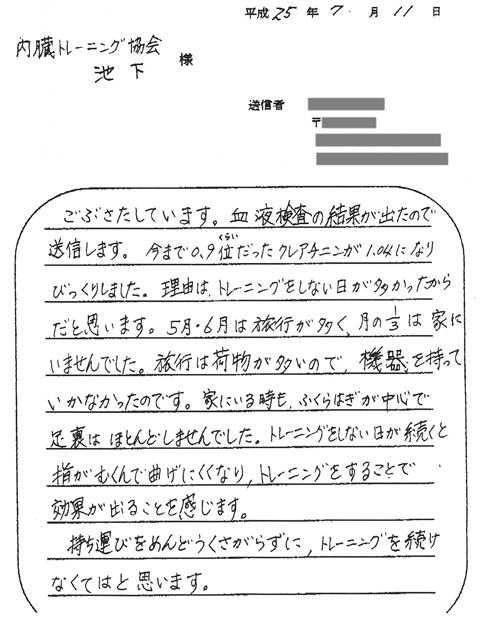 平成25年7月11日
内臓トレーニング協会
池下 様
送信者
〒
ごぶさたしています。血液検査の結果が出たので
送信します。今まで0.9位(くらい)だったクレアチニンが1.04になり
びっくりしました。理由は、トレーニングをしない日が多かったから
だと思います。5月・6月は旅行が多く、月の1/3は家に
いませんでした。旅行は荷物が多いので、機器を持って
いかなかったのです。家にいる時も、ふくらはぎが中心で
足裏はほとんどしませんでした。トレーニングをしない日が続くと
指がむくんで曲げにくくなり、トレーニングをすることで
効果が出ることを感じます。
持ち運びをめんどうくさがらずに、トレーニングを続け
なくてはと思います。